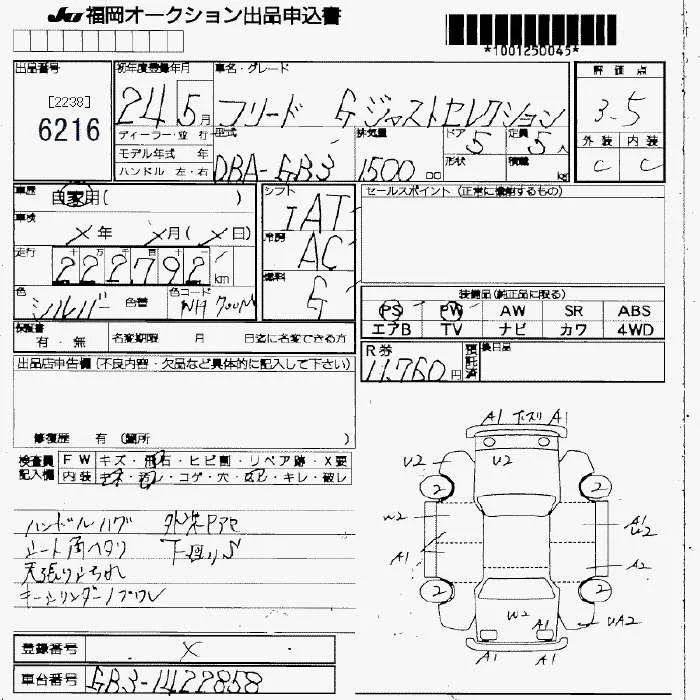 JU 福岡オークション出品申込書
*1001250045*
出品番号
[2238]
6216
初年度登録年月
24 5月
車名・グレード
フリード G ジャストセレクション
評価点
3.5
外装 内装
C C
ディーラー・並行
モデル年式 年
ハンドル 左・右
型式
DBA-GB3
排気量
1500 cc
ドア
5
形状
定員
5人
積載
kg
車歴
自家用( )
車検
×年 ×月(×日)
走行
222792 km
色
シルバー 色替
色コード
NH700M
シフト
IAT
冷房
AC
燃料
G
セールスポイント (正常に機能するもの)
装備品(純正品に限る)
PS PW AW SR ABS
エアB TV ナビ カワ 4WD
保証書
有・無
名変期限 月 日迄に名変できる方
R券
11,760円
預託済
後日品
出品店申告欄 (不良内容・欠品など具体的に記入して下さい)
修復歴 有 (箇所 )
検査員記入欄
FW キズ・飛石・ヒビ割・リペア跡・X要
内装 キズ・汚レ・コゲ・穴・凹ミ・キレ・破レ
ハンドルハゲ
シート角ヘタリ 下回りS
天張りよごれ
A1 A
U2 U2
2 2
W2 A1 U2
A1 A2
2 2
W2 A1 UA2
A1 A1
登録番号
×
車台番号
GB3-1422858